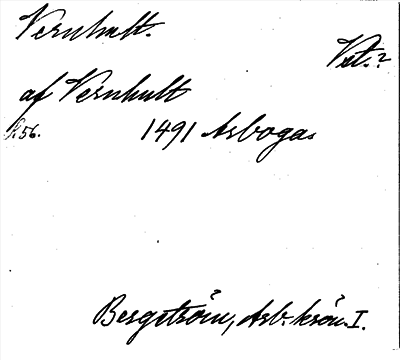 Vernhult.
Vst.?
af Vernhult
S. 56. 1491 Arboga
Bergström, Arb. krön. I.